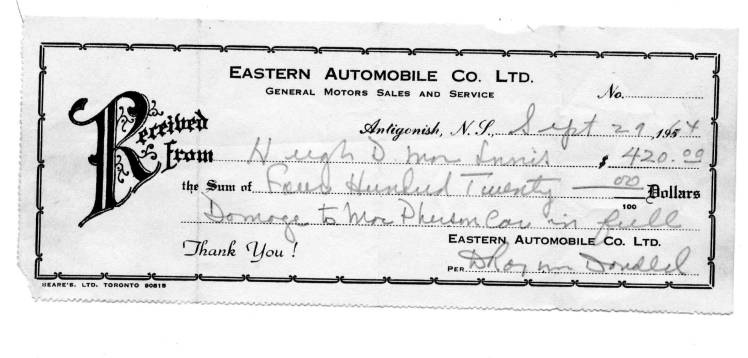 EASTERN AUTOMOBILE CO. LTD.
GENERAL MOTORS SALES AND SERVICE
No.
Antigonish, N. S., Sept 29, 1964
Received From Hugh D Mac Innis $ 420.00
the Sum of Four Hundred Twenty 00/100 Dollars
Damage to Mac Pherson Car in full
Thank You!
EASTERN AUTOMOBILE CO. LTD.
PER
BEARE'S. LTD. TORONTO 90815